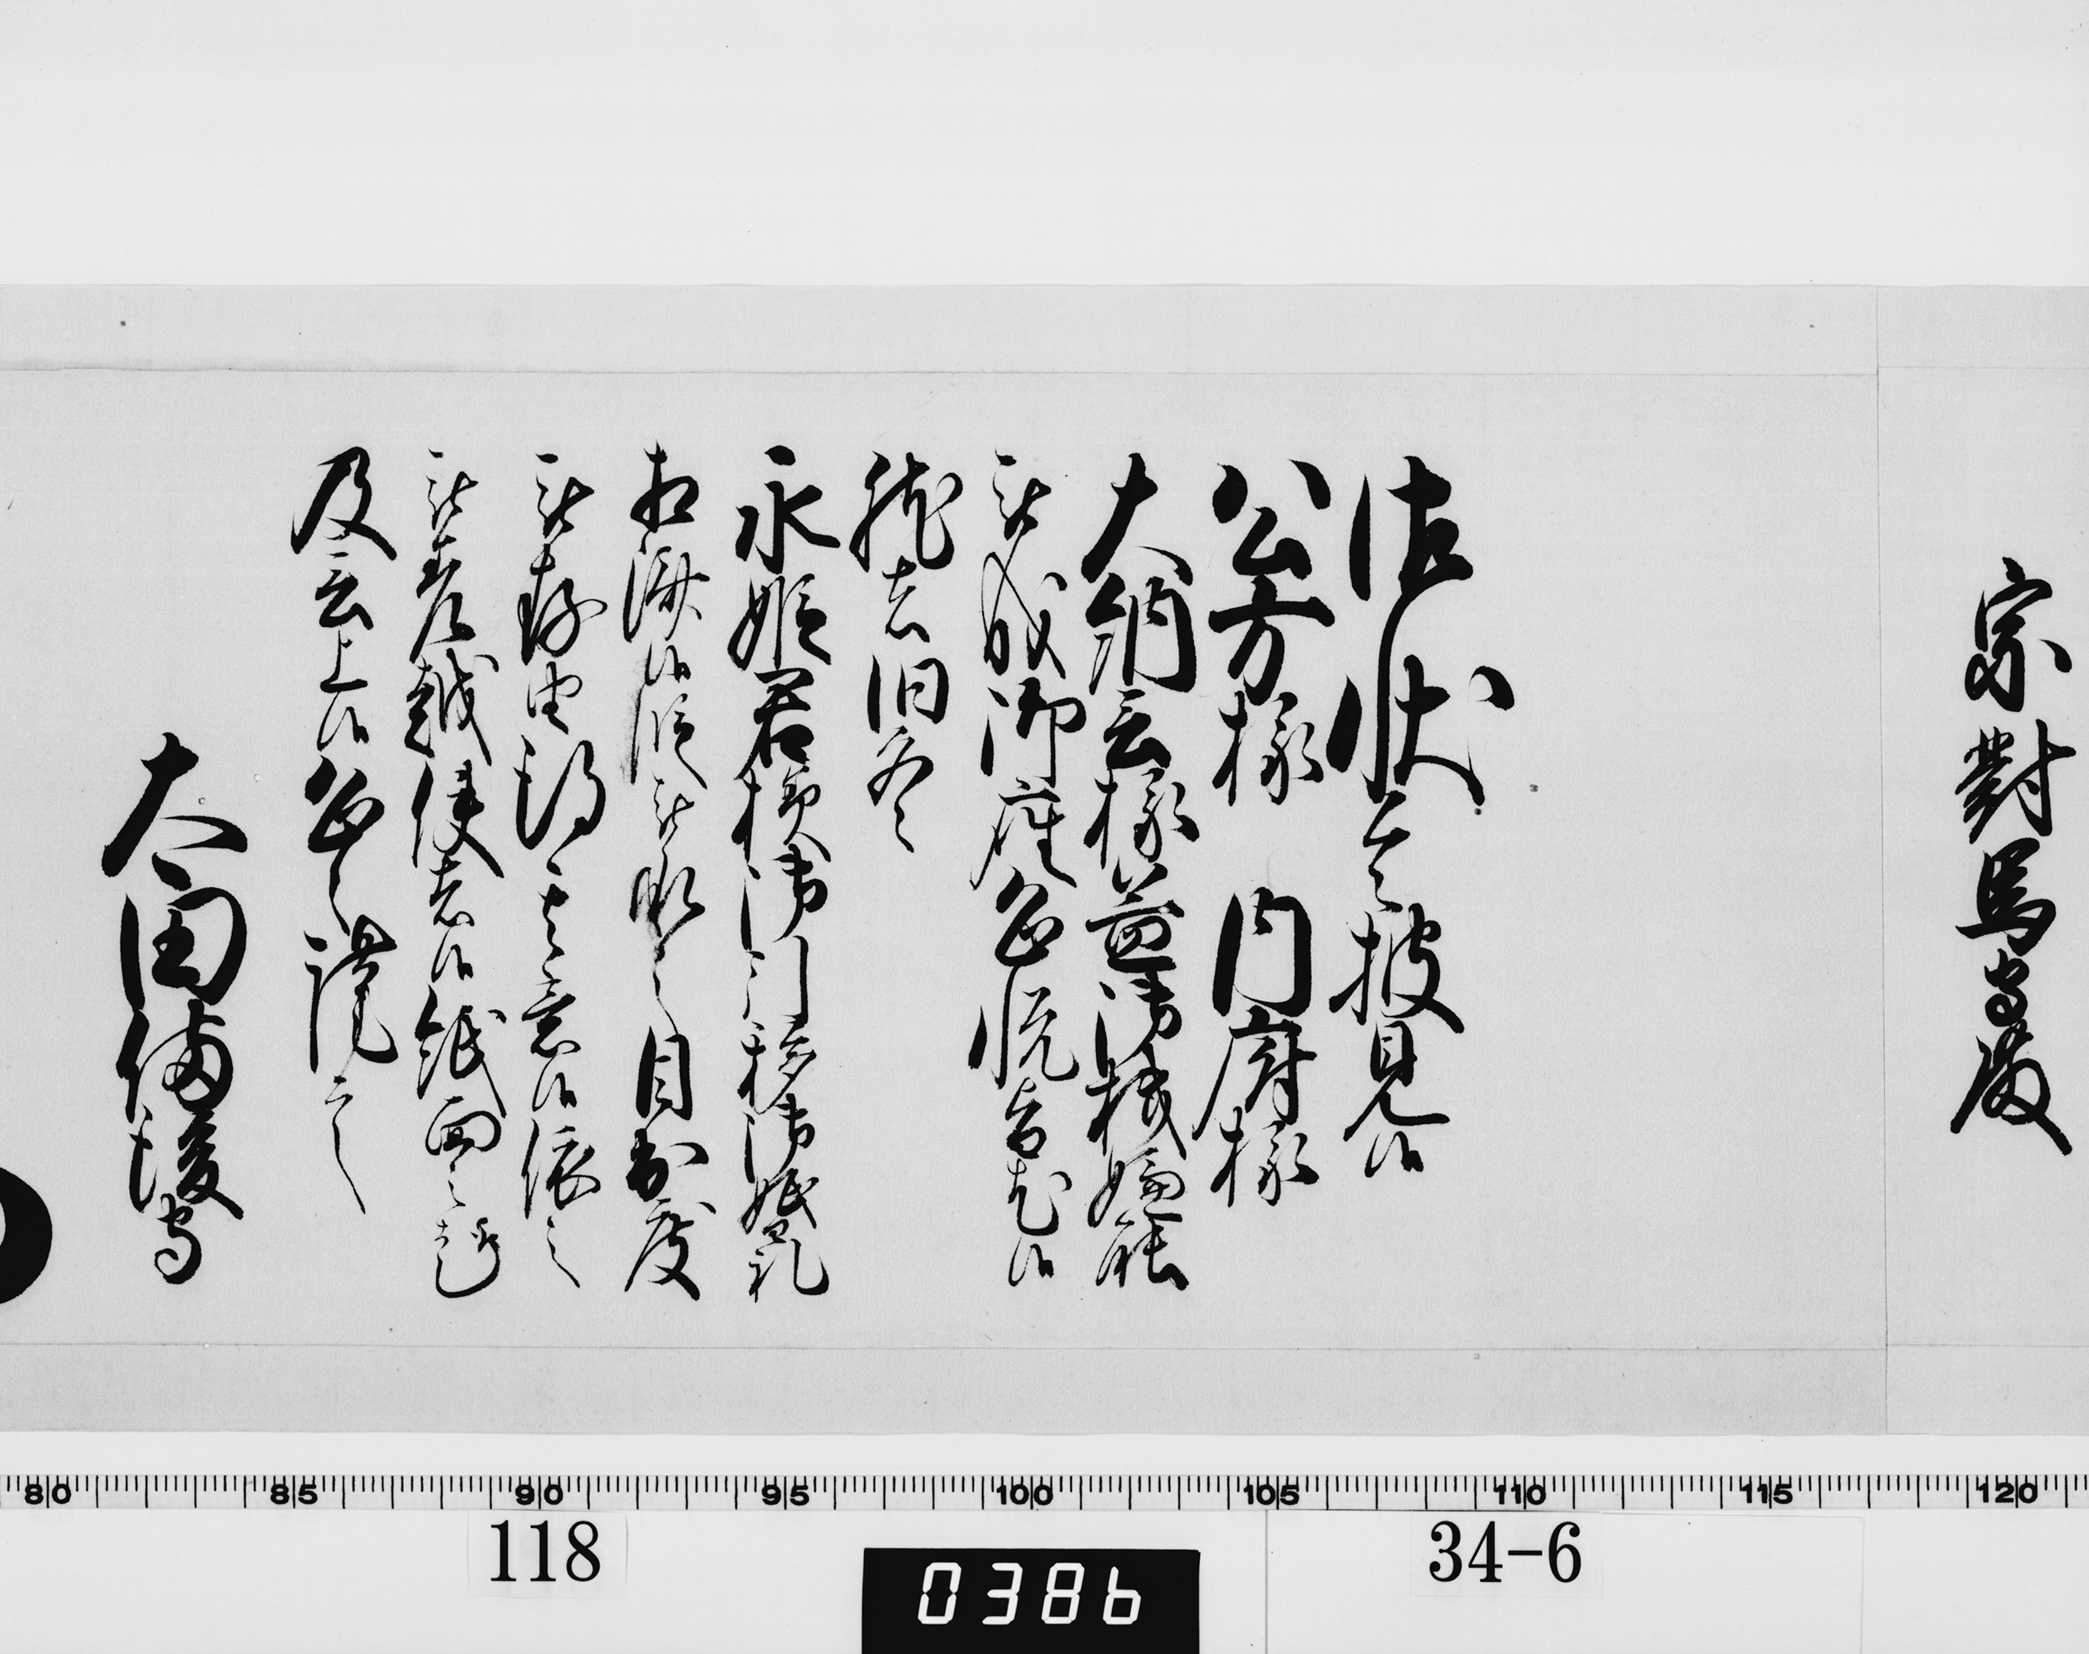 宗對馬守殿
御状令披見候
公方様 内府様
大納言様益御機嫌能
被成御座恐悦旨尤候
然者旧冬
永姫君様御引移御婚礼
相済候段被承之目出度
被存由得其意候依之
被差越使者候紙面之趣
及言上候恐々謹言
太田備後守
80 85 90 95 100 105 110 115 120
118
0386
34-6